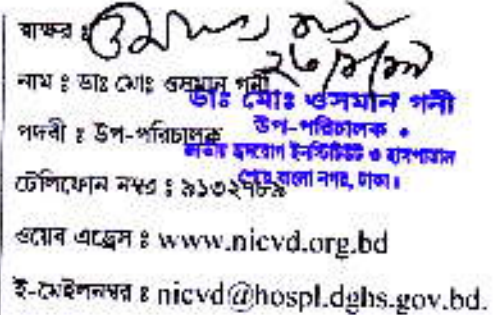 স্বাক্ষর ঃ
নাম ঃ ডাঃ মোঃ ওসমান গনী
ডাঃ মোঃ ওসমান গনী
উপ-পরিচালক
পদবী ঃ উপ-পরিচালক
জাতীয় হৃদরোগ ইনস্টিটিউট ও হাসপাতাল
শেরে বাংলা নগর, ঢাকা।
টেলিফোন নম্বর ঃ ৯১৩২৭৮৯
ওয়েব এড্রেস ঃ www.nicvd.org.bd
ই-মেইলনম্বর ঃ nicvd@hospl.dghs.gov.bd.